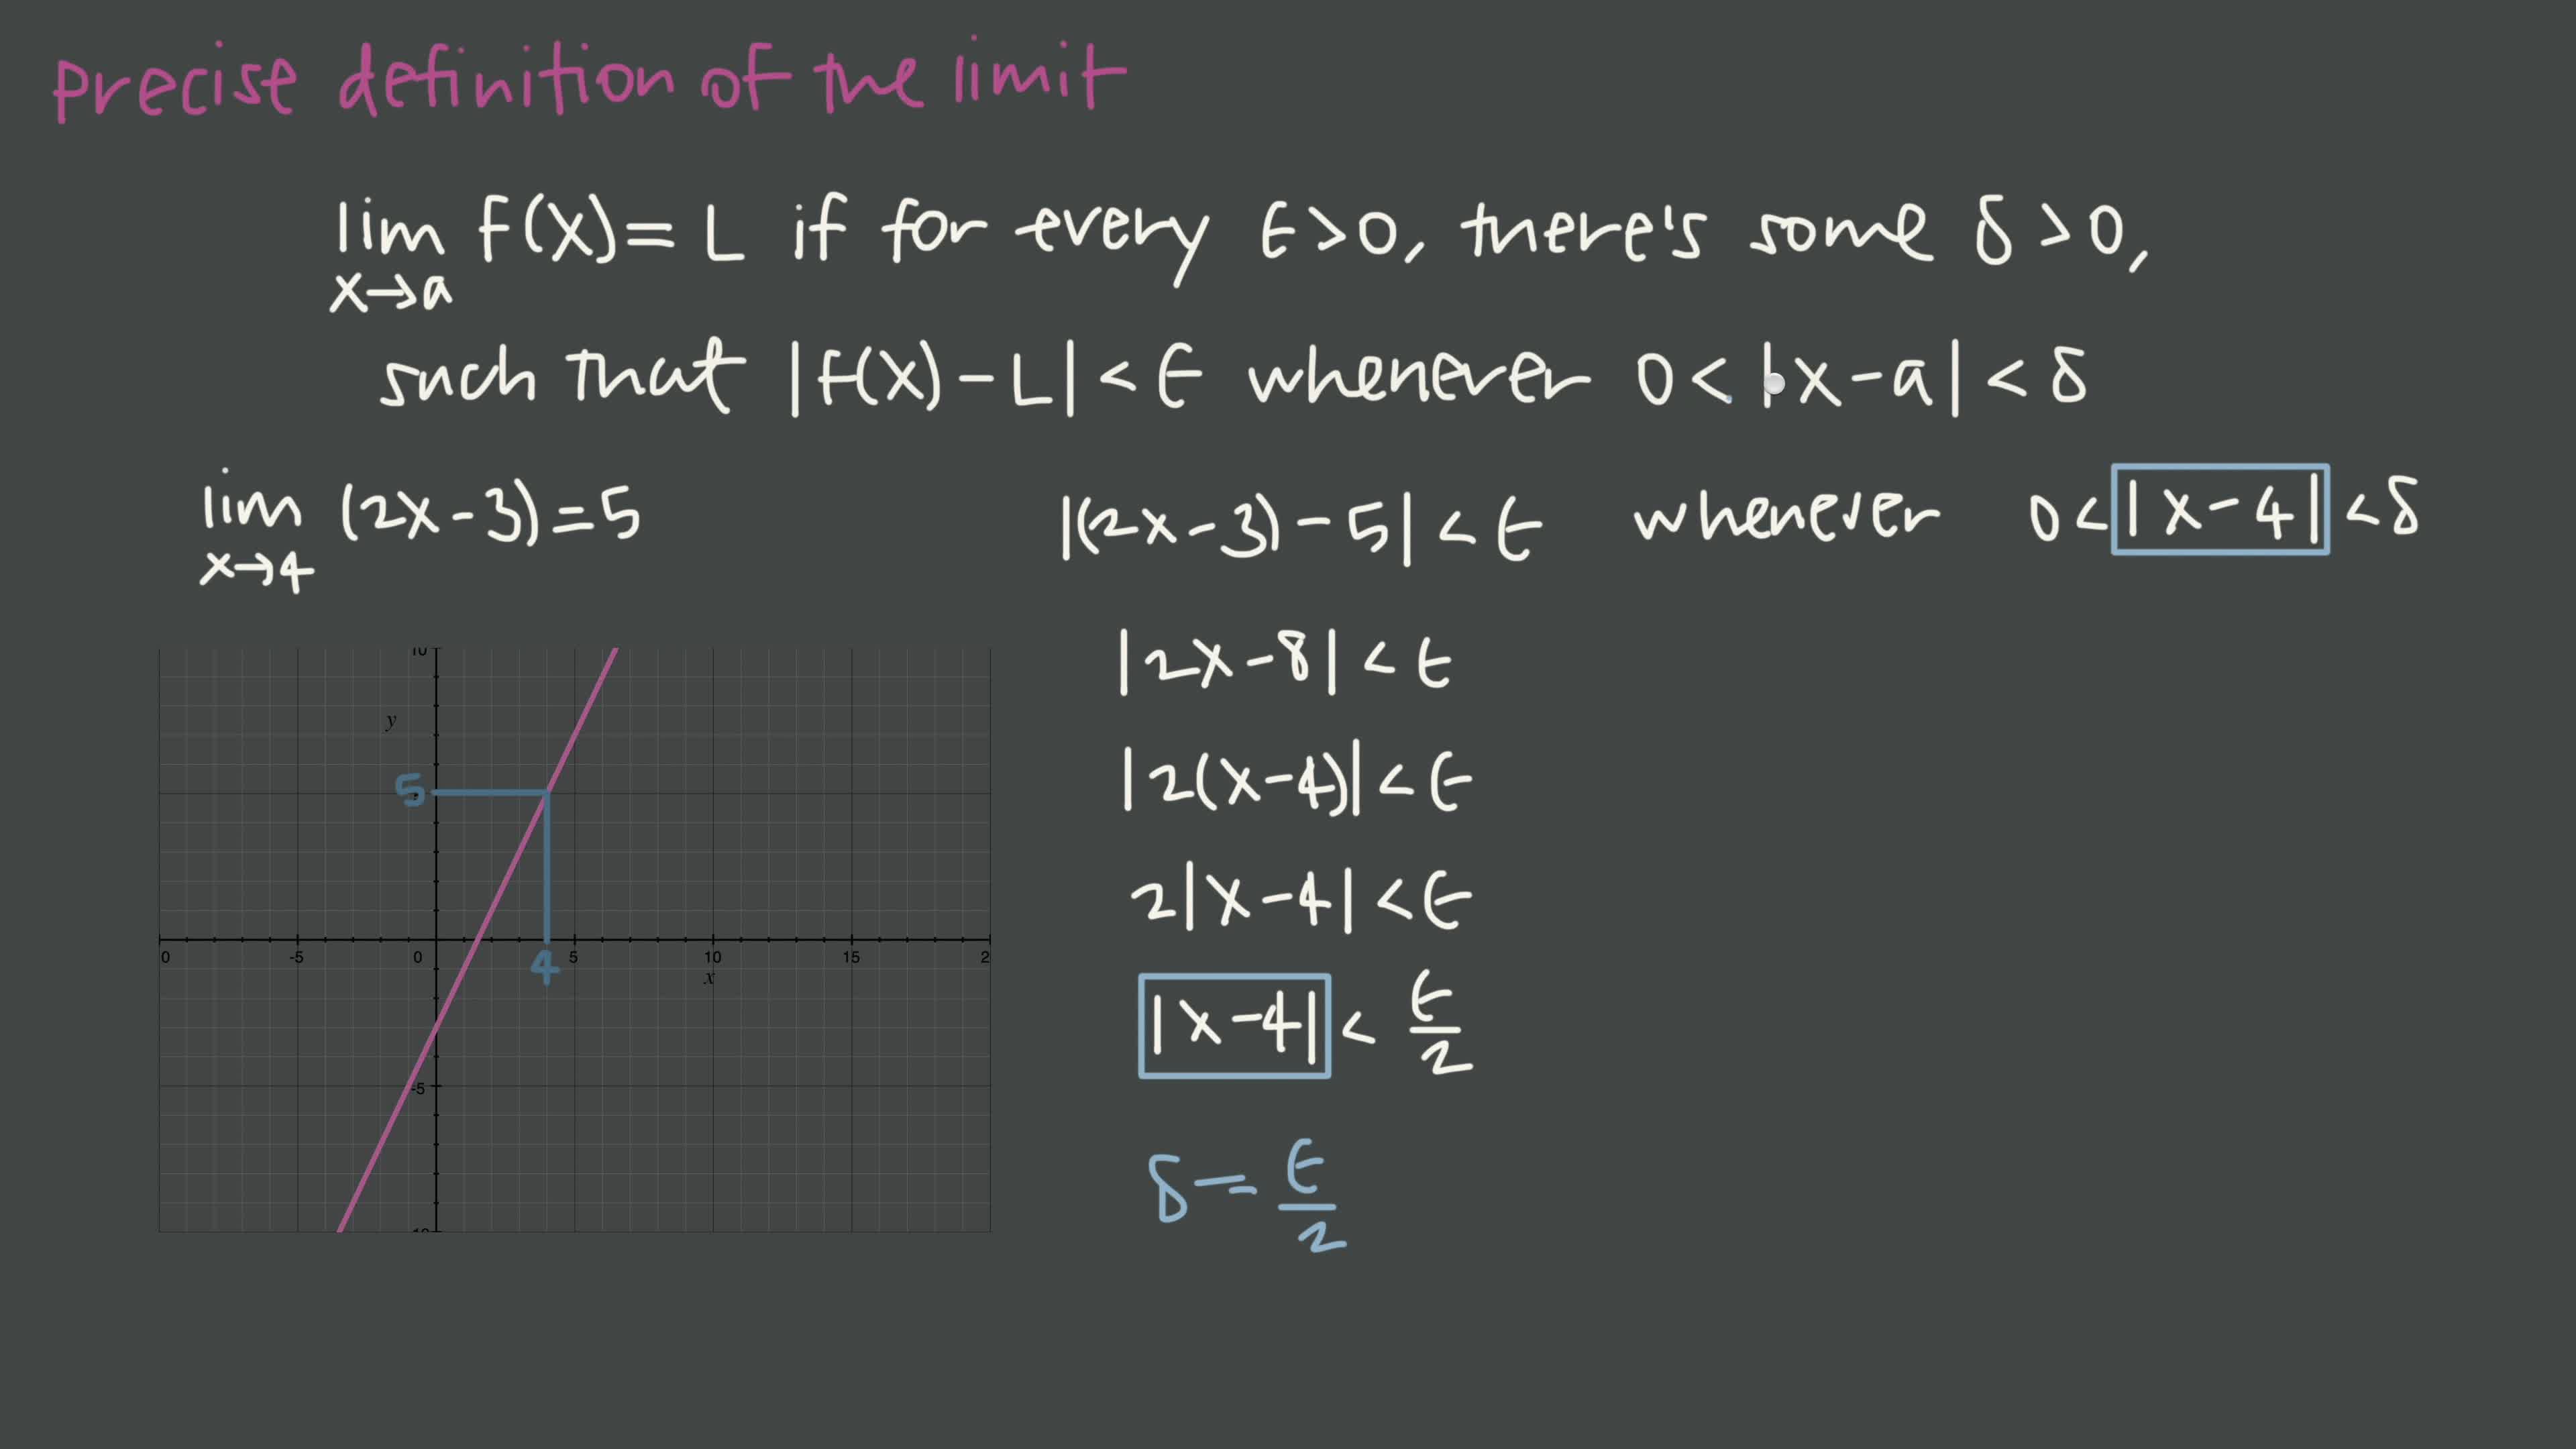 precise definition of the limit
lim f(x) = L if for every ϵ>0, there's some δ>0,
x→a
such that |f(x)-L| < ϵ whenever 0 < |x-a| < δ
lim (2x-3)=5
x→4
|(2x-3)-5| < ϵ whenever 0 < |x-4| < δ
|2x-8| < ϵ
|2(x-4)| < ϵ
2|x-4| < ϵ
|x-4| < ϵ/2
δ = ϵ/2
10
y
5
0 -5 0 4 5 10 15 2
x
-5
-10